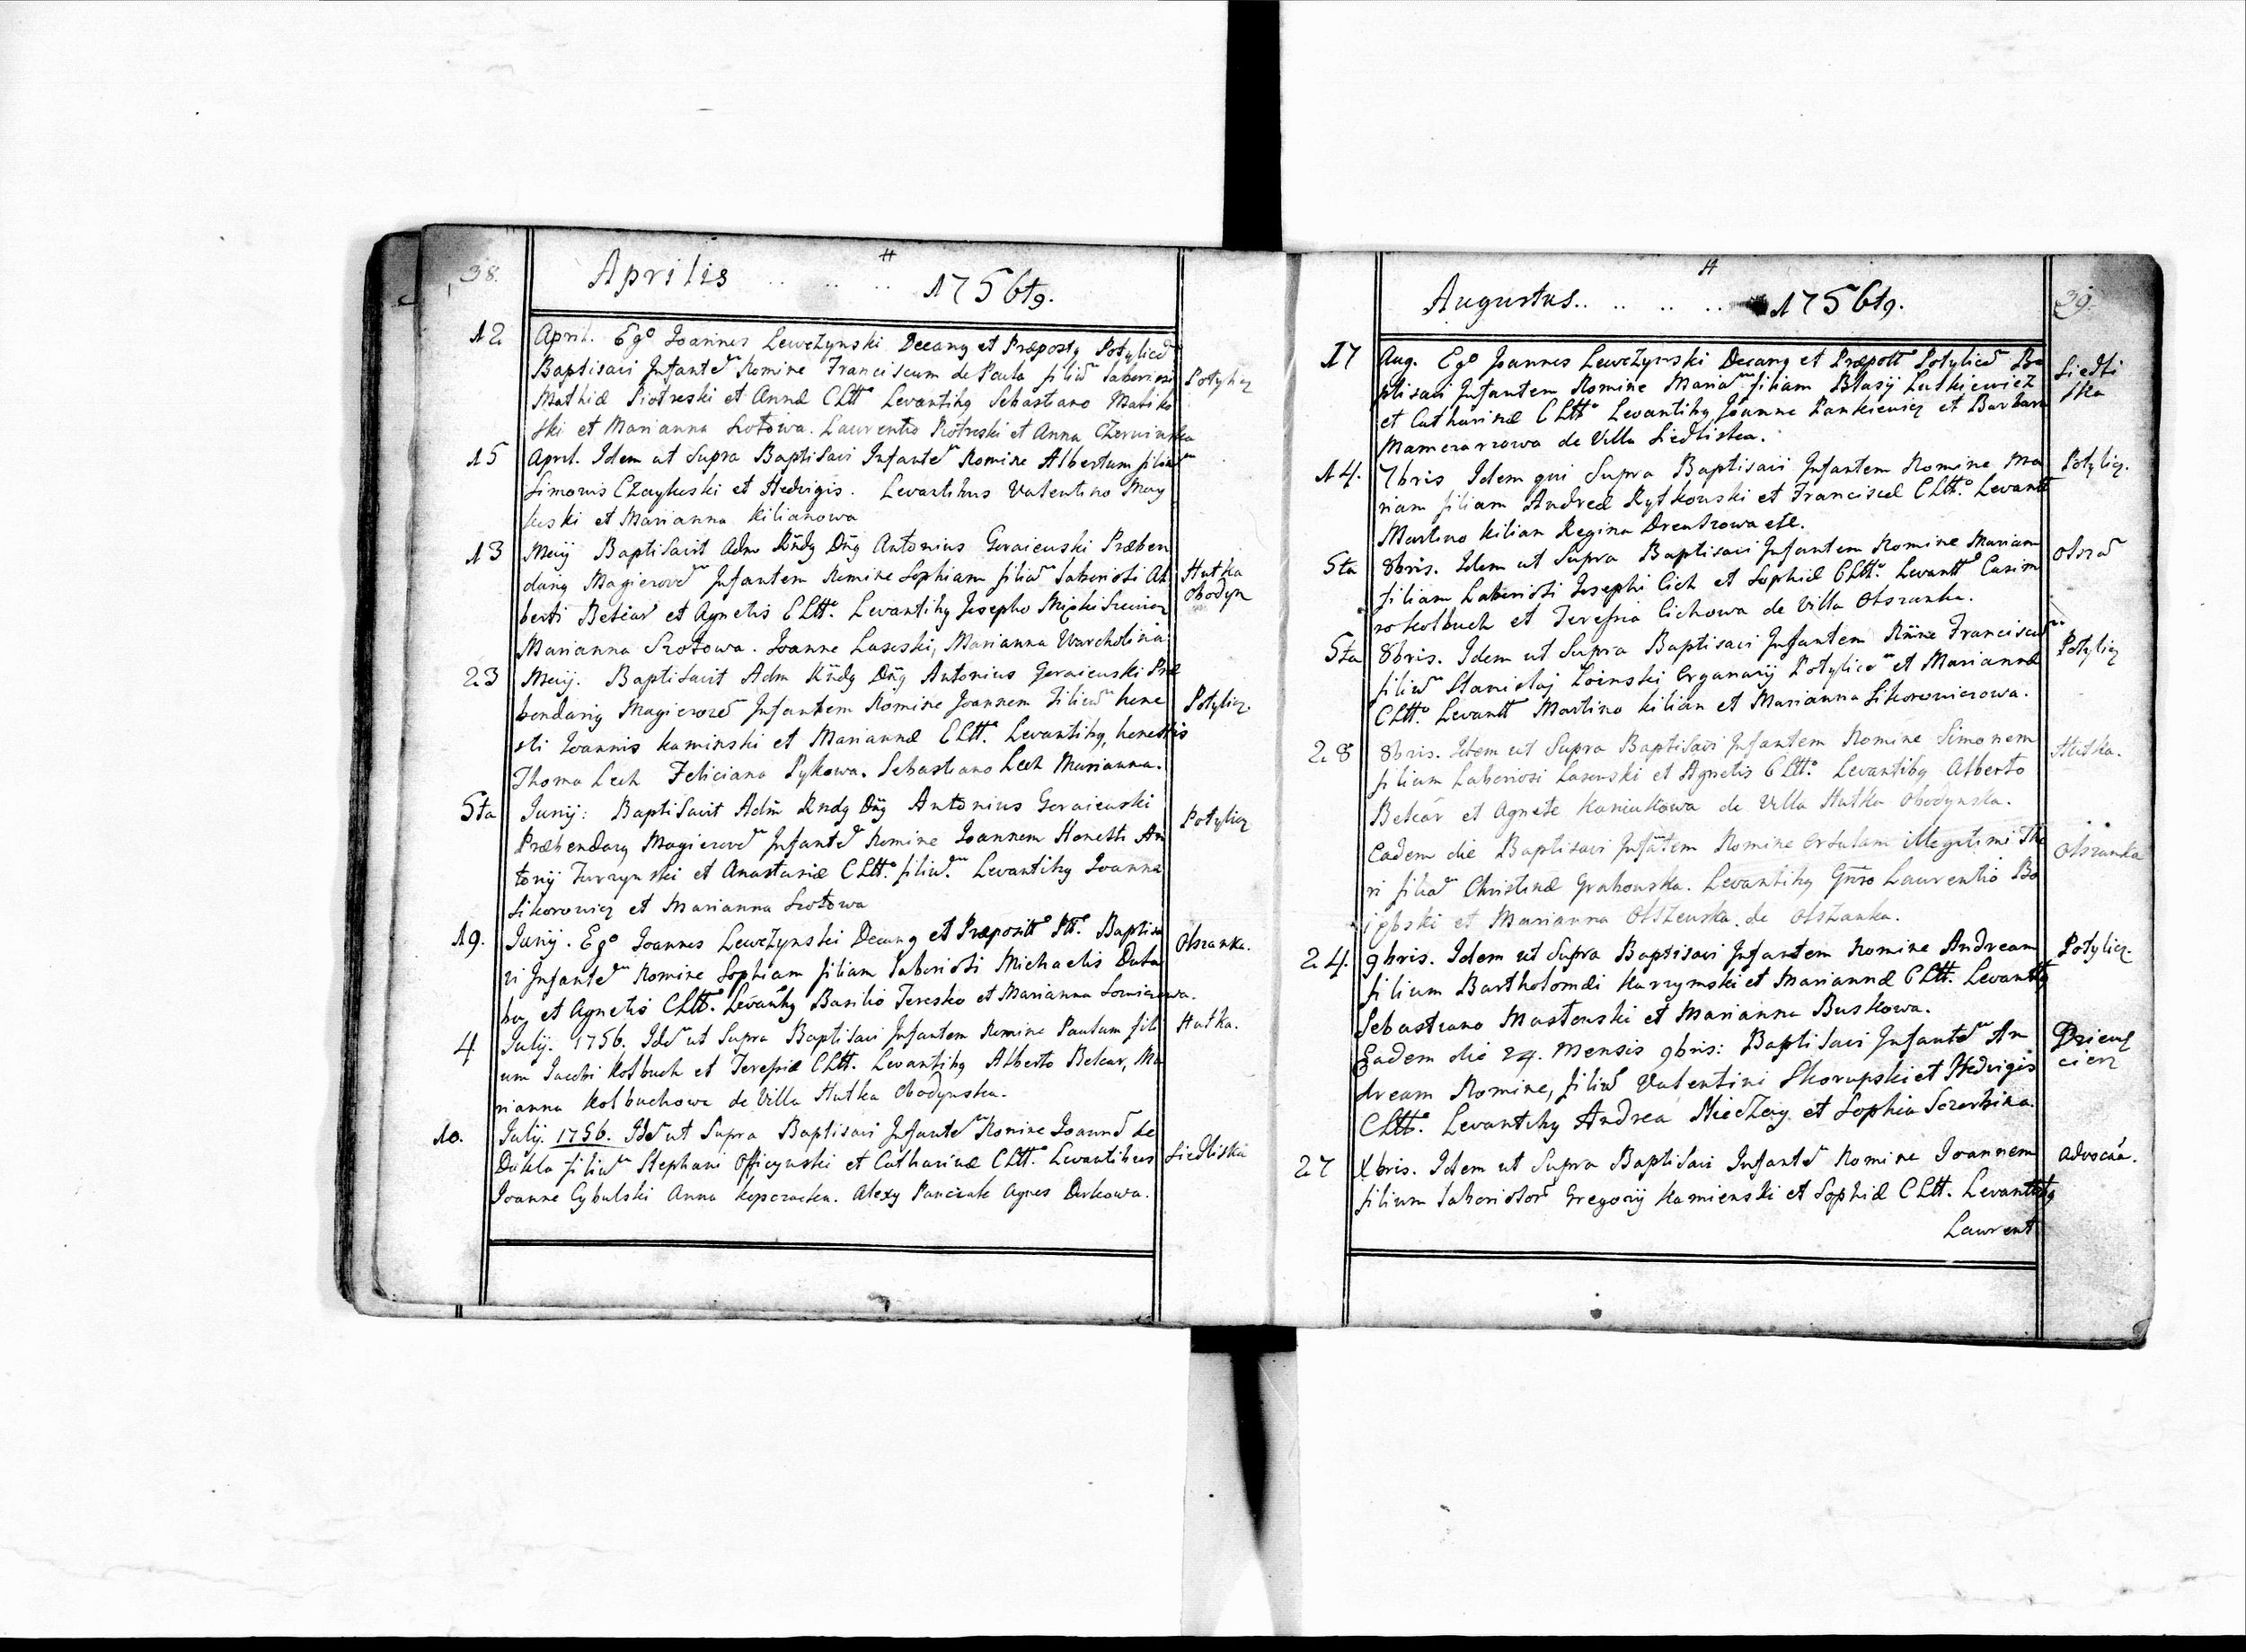 38.
Aprilis .. .. .. 1756tg.
12 April. Ego Joannes Lewczynski Decang et Præpostg Potylicen
Baptisavi Infante Nomine Franciscum de Paula filiu laboriosi Potylicz
Mathiæ Piotreski et Annæ CLtt° Levantibg Sebastiano Matiko
ski et Marianna Szotowa. Laurentio Piotreski et Anna Czerwinska
15 April. Idem ut Supra Baptisavi Infante Nomine Albertum filiu
Simonis Czaykeski et Hedvigis. Levantibus Valentino May
keski et Marianna Kilianowa
13 Maij Baptisavit Adm Rndg Dng Antonius Geraieuski Præben
darig Magierove Infantem Nomine Sophiam filia laboriosi Al Hutka
berti Betcar et Agnetis CLtt°. Levantibg Josepho Obodyn
Marianna Szotowa. Joanne Laseski, Marianna Warcholina
23 Maij. Baptisavit Adm Rndg Dng Antonius Geraieuski Præ
bendarig Magierove Infantem Nomine Joannem Filiu hone Potylicz.
sti Joannis Kaminski et Mariannæ CLtt°. Levantibg, honestis
Thoma Lech Feliciana Pykowa. Sebastiano Lech Marianna.
5ta Junij: Baptisavit Adm Rndg Dng Antonius Geraieuski Potylicz
Præbendarg Magierove Infante Nomine Joannem Honesti An
tonij Turzynski et Anastasiæ CLtt°. filiu. Levantibg Joanne
Sikorowicz et Marianna Szotowa
19. Junij. Ego Joannes Lewczynski Decang et Præpositt° Ptt°. Baptisa Olszanka.
vi Infante Nomine Sophiam filiam laboriosi Michaelis Duda
et Agnetis CLtt°. Levantbg Basilio Teresko et Marianna
4 Julij. 1756. Ide ut Supra Baptisavi Infantem Nomine Paulum fili Hutka.
um Jacobi Kolbuch et Teresiæ CLtt. Levantibg Alberto Betcar, Ma
rianna Kolbuchowa de Villa Hutka Obodynska.
10. Julij. 1756. Ide ut Supra Baptisavi Infante Nomine Joanne de
Dukla filiu Stephani Officynski et Catharinæ CLtt°. Levantibus Siedliska
Joanne Cybulski Anna Kopczacka. Alexy Panciak Agnes Durkowa.
39.
Augustus.. .. .. .. 1756tg.
17 Aug. Ego Joannes Lewczynski Decang et Præpott Potylice Ba Siedli
ptisavi Infantem Nomine Maria filiam Blasij Lutkiewicz ska
et Catharinæ CLtt° Levantibg Joanne Pankiewicz et Barbara
Mamczarzowa de Villa Siedliska.
14. 7bris Idem qui Supra Baptisavi Infantem Nomine Ma Potylicz.
riam filiam Andreæ Rytkowski et Franciscæ CLtt°. Levantt
Martino Kilian Regina etc.
5ta 8bris. Idem ut Supra Baptisavi Infantem Nomine Mariam Olsza
filiam Laboriosi Josephi Cich et Sophiæ CLtt°. Levantt Casim
ro Kolbuch et Teresia Cichowa de Villa Olszanka.
5ta 8bris. Idem ut Supra Baptisavi Infantem Nnine Franciscu Potylicz
filiu Stanislaj Loinski Organarij Potylice et Mariannæ
CLtt°. Levantt Martino Kilian et Marianna Sikorowiczowa.
28 8bris. Idem ut Supra Baptisavi Infantem Nomine Simonem Hutka.
filium Laboriosi Lasenski et Agnetis CLtt°. Levantibg Alberto
Betcar et Agnete Kaniukowa de Villa Hutka Obodynska.
Eadem die Baptisavi Infatem Nomine Ursulam illegitimi Tho Olszanka
ri filia Christinæ Grabowska. Levantibg Gnro Laurentio Bo
ski et Marianna Olszewska de Olszanka.
24. 9bris. Idem ut Supra Baptisavi Infantem Nomine Andream Potylicz.
filium Bartholomæi Karzymski et Mariannæ CLtt. Levantibg
Sebastiano Mastenski et Marianna Buskowa.
Eadem die 24. Mensis 9bris: Baptisavi Infante An
dream Nomine, filiu Valentini Skorupski et Hedvigis
CLtt°. Levantibg Andrea Niedzay et Sophia Szczerbina.
27 Xbris. Idem ut Supra Baptisavi Infante Nomine Joannem Advocaa.
filium laboriosor Gregorij Kamienski et Sophiæ CLtt. Levantibg
Laurent